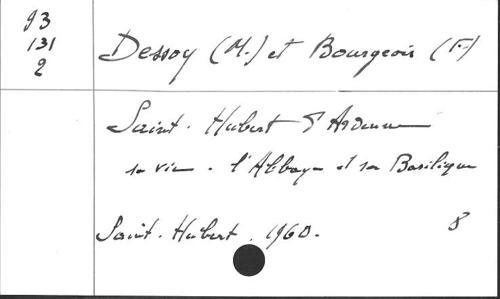 93
131
2
Dessoy (M.) et Bourgeois (F.)
Saint. Hubert d'Ardenne
sa vie. l'Abbaye et sa Basilique
Saint. Hubert. 1960. 8